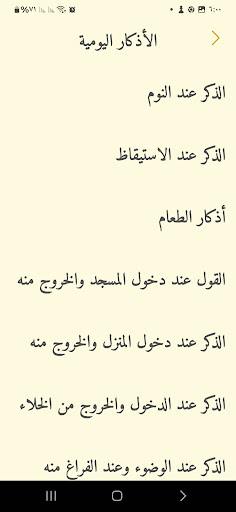 ٦:٠٠
٪٧١
الأذكار اليومية
الذكر عند النوم
الذكر عند الاستيقاظ
أذكار الطعام
القول عند دخول المسجد والخروج منه
الذكر عند دخول المنزل والخروج منه
الذكر عند الدخول والخروج من الخلاء
الذكر عند الوضوء وعند الفراغ منه